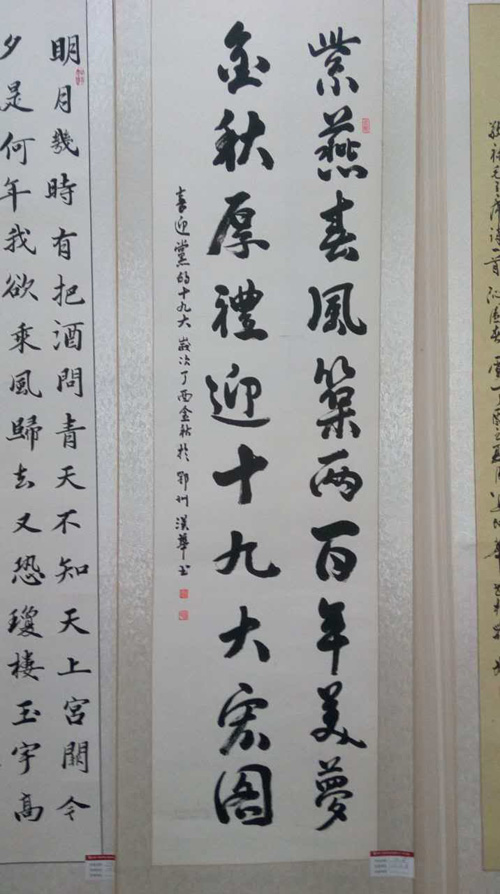 紫燕春風築两百年美夢
金秋厚禮迎十九大宏图
喜迎黨的十九大 歲次丁酉金秋於鄂州漢華书
明月幾時有把酒問青天不知天上宮闕今
夕是何年我欲乘風歸去又恐瓊樓玉宇高